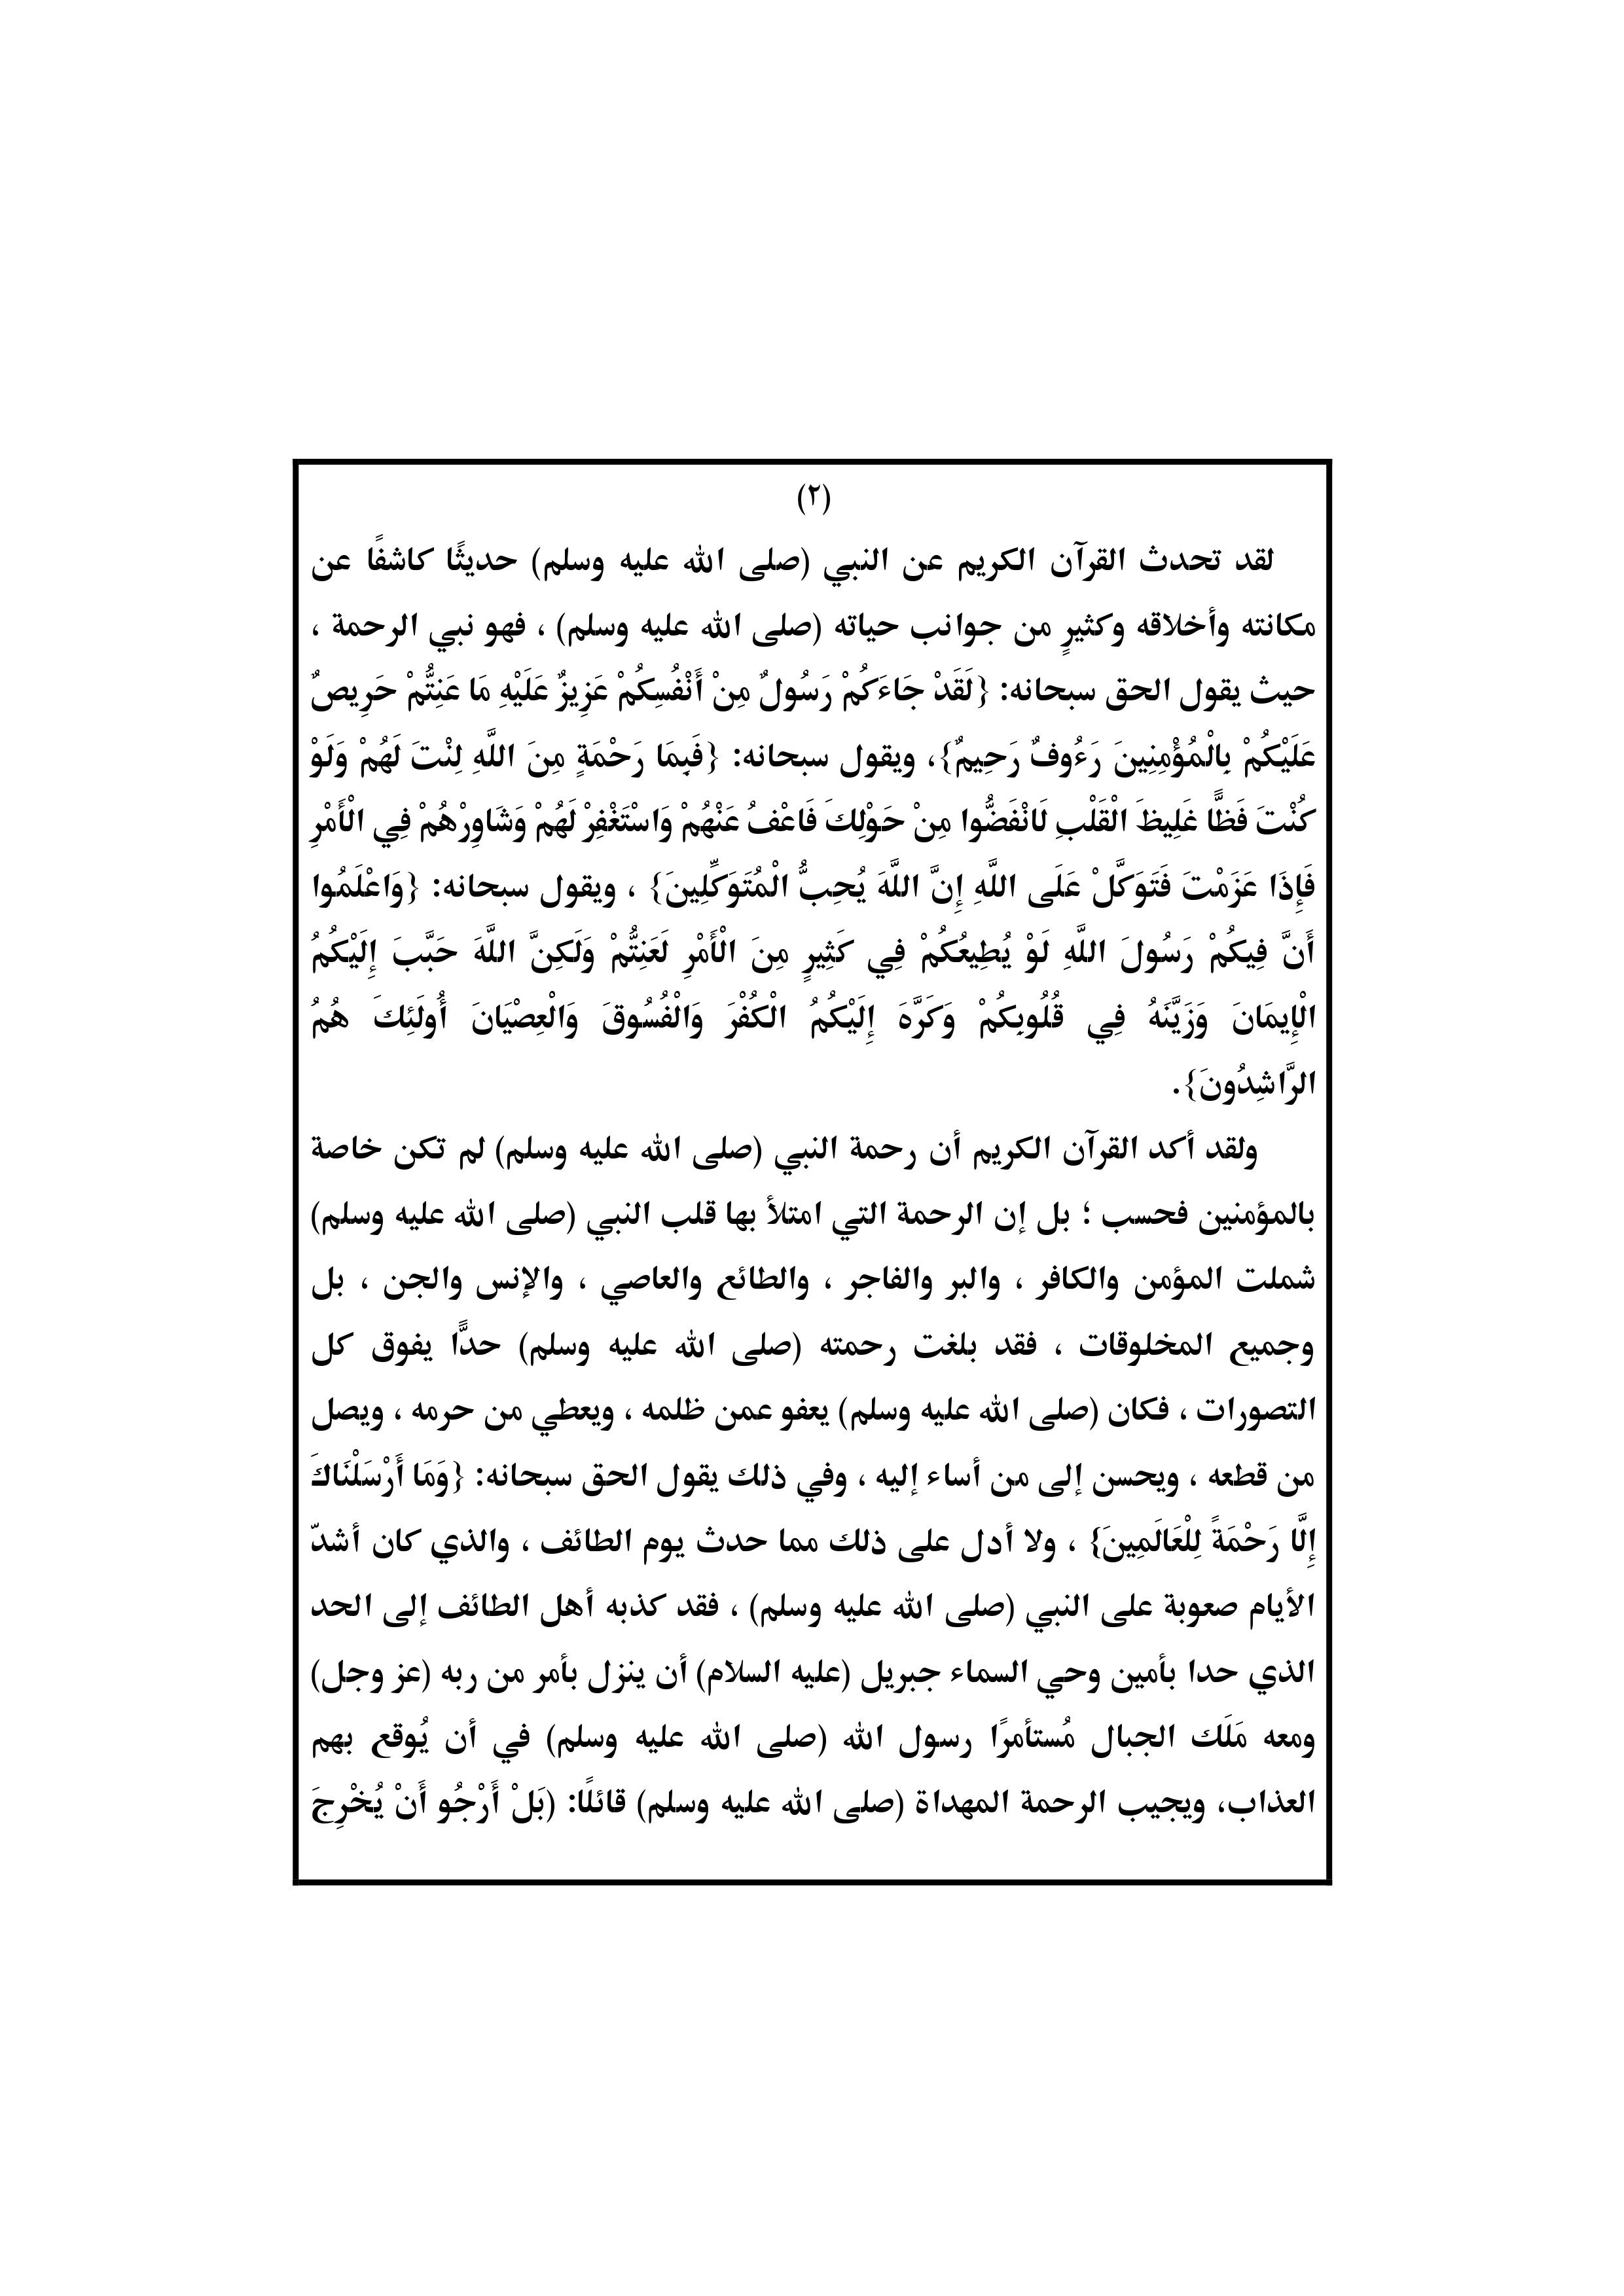 (٢)
لقد تحدث القرآن الكريم عن النبي (صلى الله عليه وسلم) حديثًا كاشفًا عن
مكانته وأخلاقه وكثيرٍ من جوانب حياته (صلى الله عليه وسلم) ، فهو نبي الرحمة ،
حيث يقول الحق سبحانه: {لَقَدْ جَاءَكُمْ رَسُولٌ مِنْ أَنْفُسِكُمْ عَزِيزٌ عَلَيْهِ مَا عَنِتُّمْ حَرِيصٌ
عَلَيْكُمْ بِالْمُؤْمِنِينَ رَءُوفٌ رَحِيمٌ}، ويقول سبحانه: {فَبِمَا رَحْمَةٍ مِنَ اللَّهِ لِنْتَ لَهُمْ وَلَوْ
كُنْتَ فَظًّا غَلِيظَ الْقَلْبِ لَانْفَضُّوا مِنْ حَوْلِكَ فَاعْفُ عَنْهُمْ وَاسْتَغْفِرْ لَهُمْ وَشَاوِرْهُمْ فِي الْأَمْرِ
فَإِذَا عَزَمْتَ فَتَوَكَّلْ عَلَى اللَّهِ إِنَّ اللَّهَ يُحِبُّ الْمُتَوَكِّلِينَ} ، ويقول سبحانه: {وَاعْلَمُوا
أَنَّ فِيكُمْ رَسُولَ اللَّهِ لَوْ يُطِيعُكُمْ فِي كَثِيرٍ مِنَ الْأَمْرِ لَعَنِتُّمْ وَلَكِنَّ اللَّهَ حَبَّبَ إِلَيْكُمُ
الْإِيمَانَ وَزَيَّنَهُ فِي قُلُوبِكُمْ وَكَرَّهَ إِلَيْكُمُ الْكُفْرَ وَالْفُسُوقَ وَالْعِصْيَانَ أُولَئِكَ هُمُ
الرَّاشِدُونَ}.
ولقد أكد القرآن الكريم أن رحمة النبي (صلى الله عليه وسلم) لم تكن خاصة
بالمؤمنين فحسب ؛ بل إن الرحمة التي امتلأ بها قلب النبي (صلى الله عليه وسلم)
شملت المؤمن والكافر ، والبر والفاجر ، والطائع والعاصي ، والإنس والجن ، بل
وجميع المخلوقات ، فقد بلغت رحمته (صلى الله عليه وسلم) حدًّا يفوق كل
التصورات ، فكان (صلى الله عليه وسلم) يعفو عمن ظلمه ، ويعطي من حرمه ، ويصل
من قطعه ، ويحسن إلى من أساء إليه ، وفي ذلك يقول الحق سبحانه: {وَمَا أَرْسَلْنَاكَ
إِلَّا رَحْمَةً لِلْعَالَمِينَ} ، ولا أدل على ذلك مما حدث يوم الطائف ، والذي كان أشدّ
الأيام صعوبة على النبي (صلى الله عليه وسلم) ، فقد كذبه أهل الطائف إلى الحد
الذي حدا بأمين وحي السماء جبريل (عليه السلام) أن ينزل بأمر من ربه (عز وجل)
ومعه مَلَك الجبال مُستأمرًا رسول الله (صلى الله عليه وسلم) في أن يُوقع بهم
العذاب، ويجيب الرحمة المهداة (صلى الله عليه وسلم) قائلًا: (بَلْ أَرْجُو أَنْ يُخْرِجَ